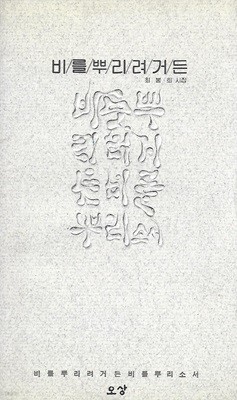 비/를/뿌/리/려/거/든
시집
비를뿌
리려거
든비를
뿌리소서
비를뿌리려거든비를뿌리소서
오상